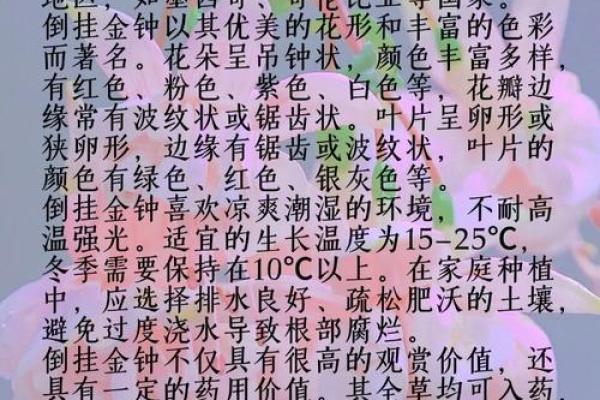 地区，如墨西哥、哥伦比亚等国家。
倒挂金钟以其优美的花形和丰富的色彩
而著名。花朵呈吊钟状，颜色丰富多样，
有红色、粉色、紫色、白色等，花瓣边
缘常有波纹状或锯齿状。叶片呈卵形或
狭卵形，边缘有锯齿或波纹状，叶片的
颜色有绿色、红色、银灰色等。
倒挂金钟喜欢凉爽潮湿的环境，不耐高
温强光。适宜的生长温度为15-25℃，
冬季需要保持在10℃以上。在家庭种植
中，应选择排水良好、疏松肥沃的土壤，
避免过度浇水导致根部腐烂。
倒挂金钟不仅具有很高的观赏价值，还
具有一定的药用价值。其全草均可入药，